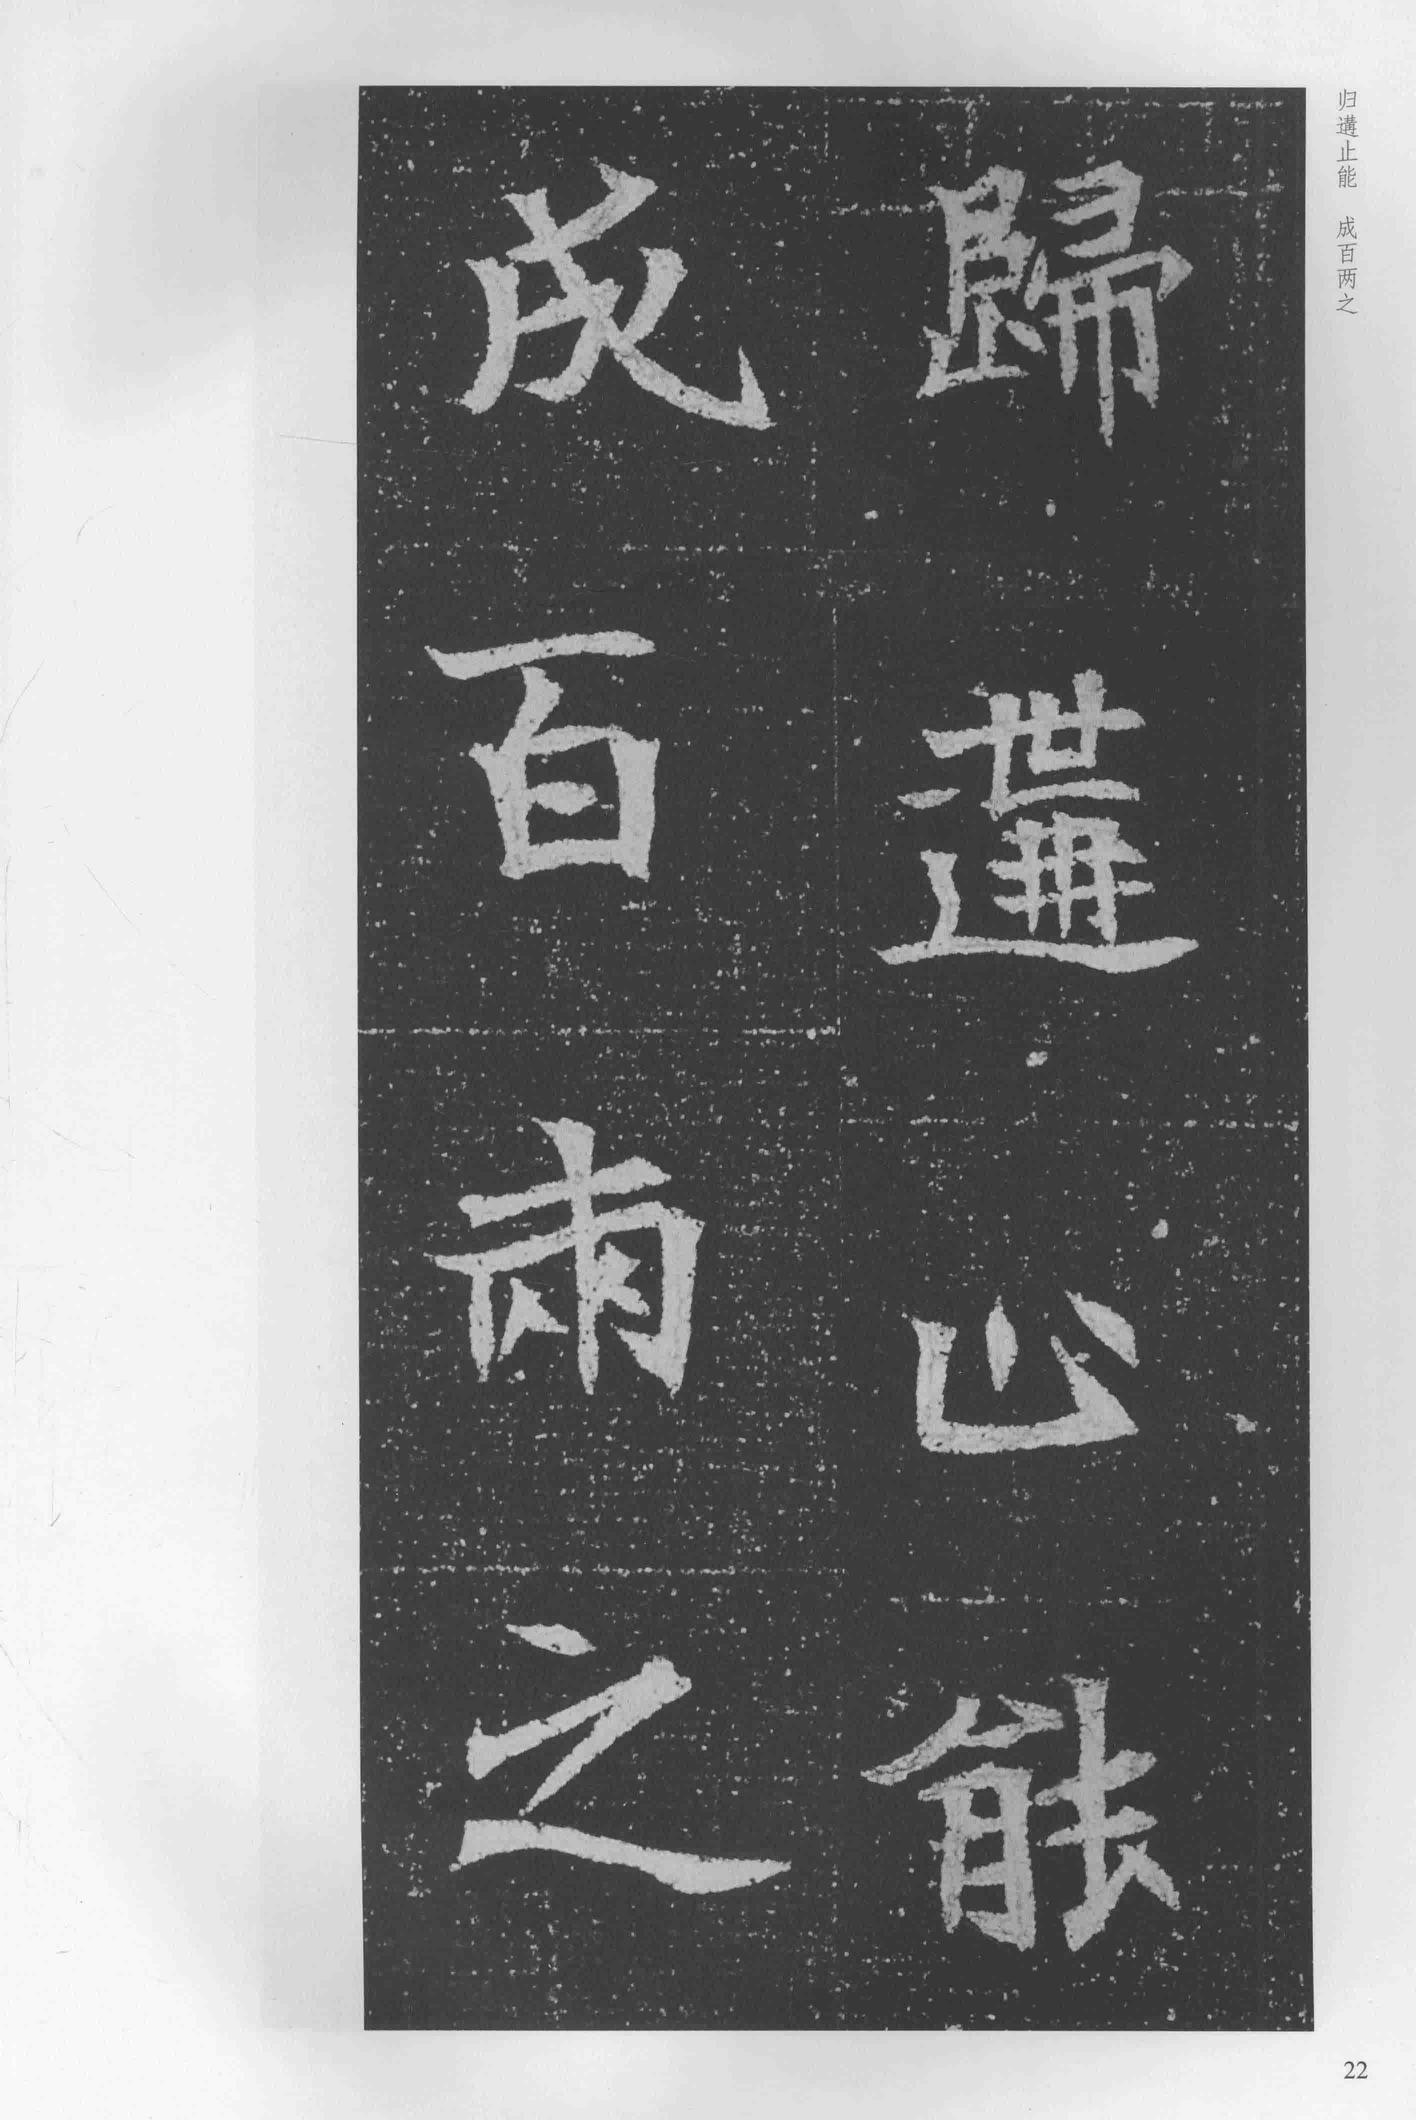 歸遘止能
成百兩之
归遘止能 成百两之
22